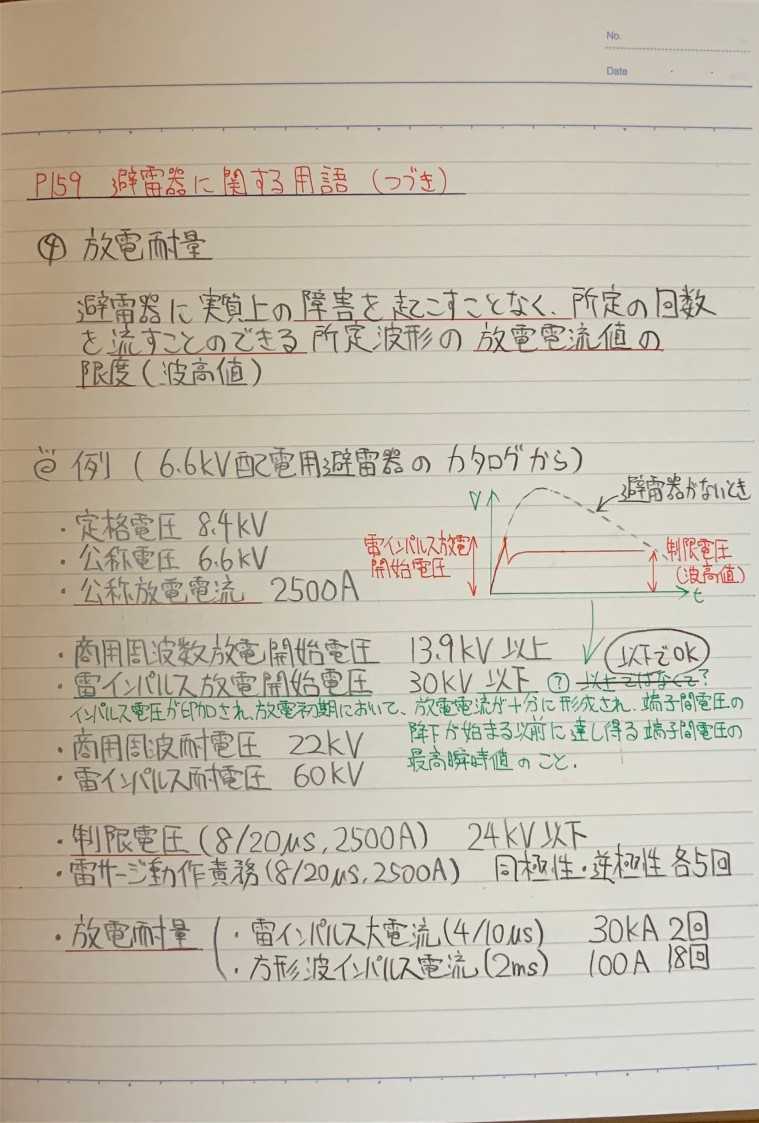 No.
Date
P159 避雷器に関する用語 (つづき)
④ 放電耐量
避雷器に実質上の障害を起こすことなく、所定の回数
を流すことのできる所定波形の放電電流値の
限度(波高値)
例 (6.6kV配電用避雷器のカタログから)
避雷器がないとき
V
・定格電圧 8.4kV
雷インパルス放電
開始電圧
制限電圧
(波高値)
・公称電圧 6.6kV
・公称放電電流 2500A
t
・商用周波数放電開始電圧 13.9kV以上
以下でOK
・雷インパルス放電開始電圧 30kV以下 ? 以上ではなくて?
インパルス電圧が印加され、放電初期において、放電電流が十分に形成され、端子間電圧の
降下が始まる以前に達し得る端子間電圧の
最高瞬時値のこと.
・商用周波耐電圧 22kV
・雷インパルス耐電圧 60kV
・制限電圧(8/20μs, 2500A) 24kV以下
・雷サージ動作責務(8/20μs, 2500A) 同極性・逆極性 各5回
・放電耐量 ・雷インパルス大電流(4/10μs) 30kA 2回
・方形波インパルス電流(2ms) 100A 18回